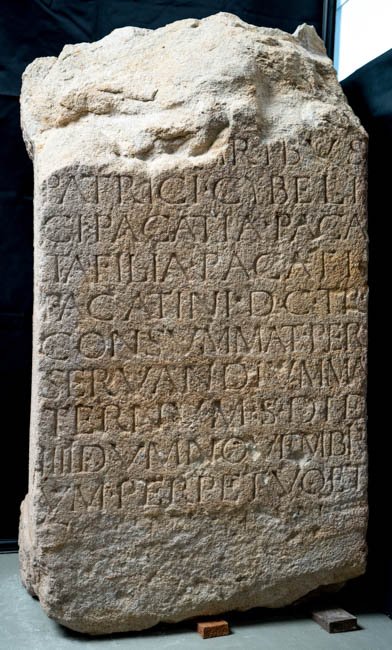 RIBVS
PATRICI·CYBELI
CI·PACATIA·PACA
TA FILIA·PACATI
PACATINI·D·C·TE
CONSVMMAT·PER
SERVANDIVMNA
S·DIE
IIIIDVMNOVEMBR
VM·PERPETVOET